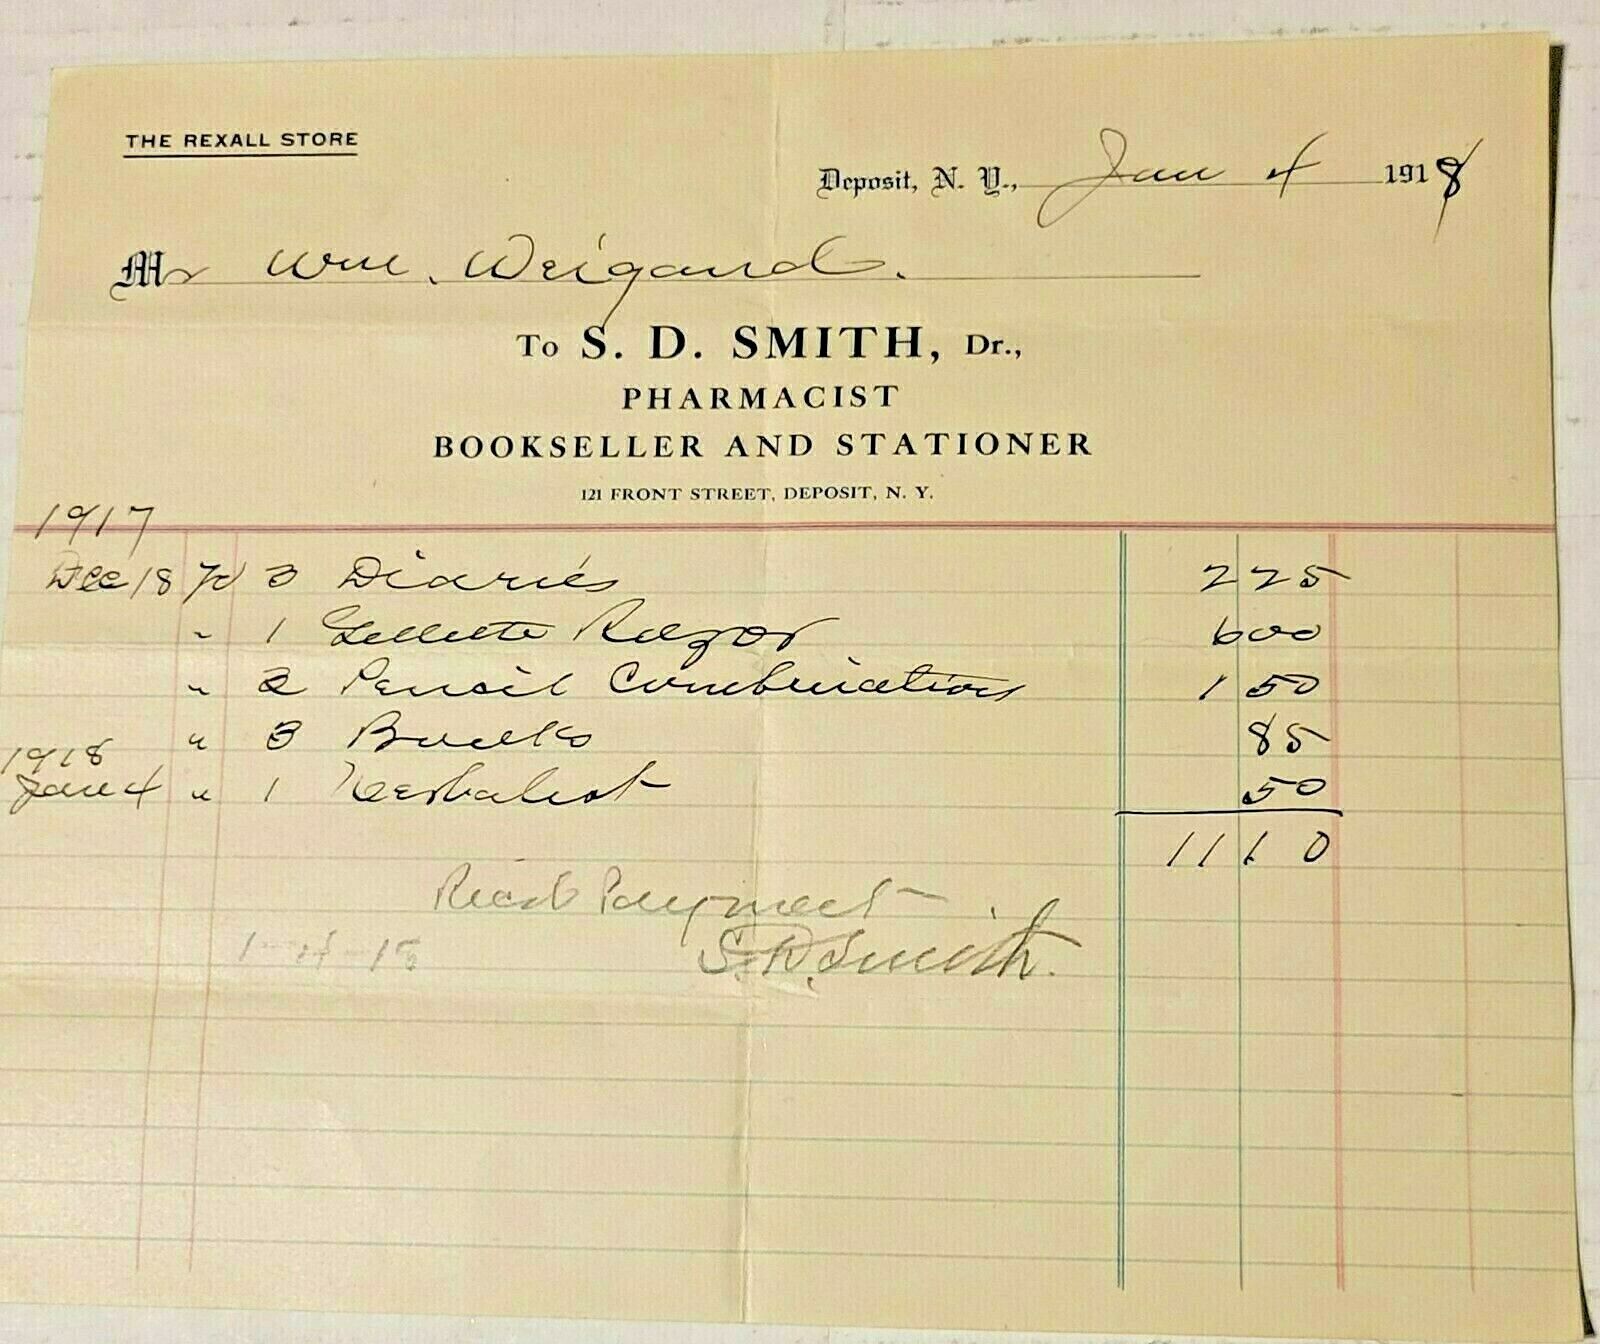 THE REXALL STORE
Deposit, N. Y., Jan 4 1918
Mr Wm. Weigand.
To S. D. SMITH, Dr.,
PHARMACIST
BOOKSELLER AND STATIONER
121 FRONT STREET, DEPOSIT, N. Y.
1917
Dec 18 To 3 Diaries 2 25
" 1 Gillette Razor 6 00
" 2 Pencil Combinations 1 50
" 3 Books 85
1918
Jan 4 " 1 50
11 10
Rec'd Payment
1-4-18 S. D. Smith.